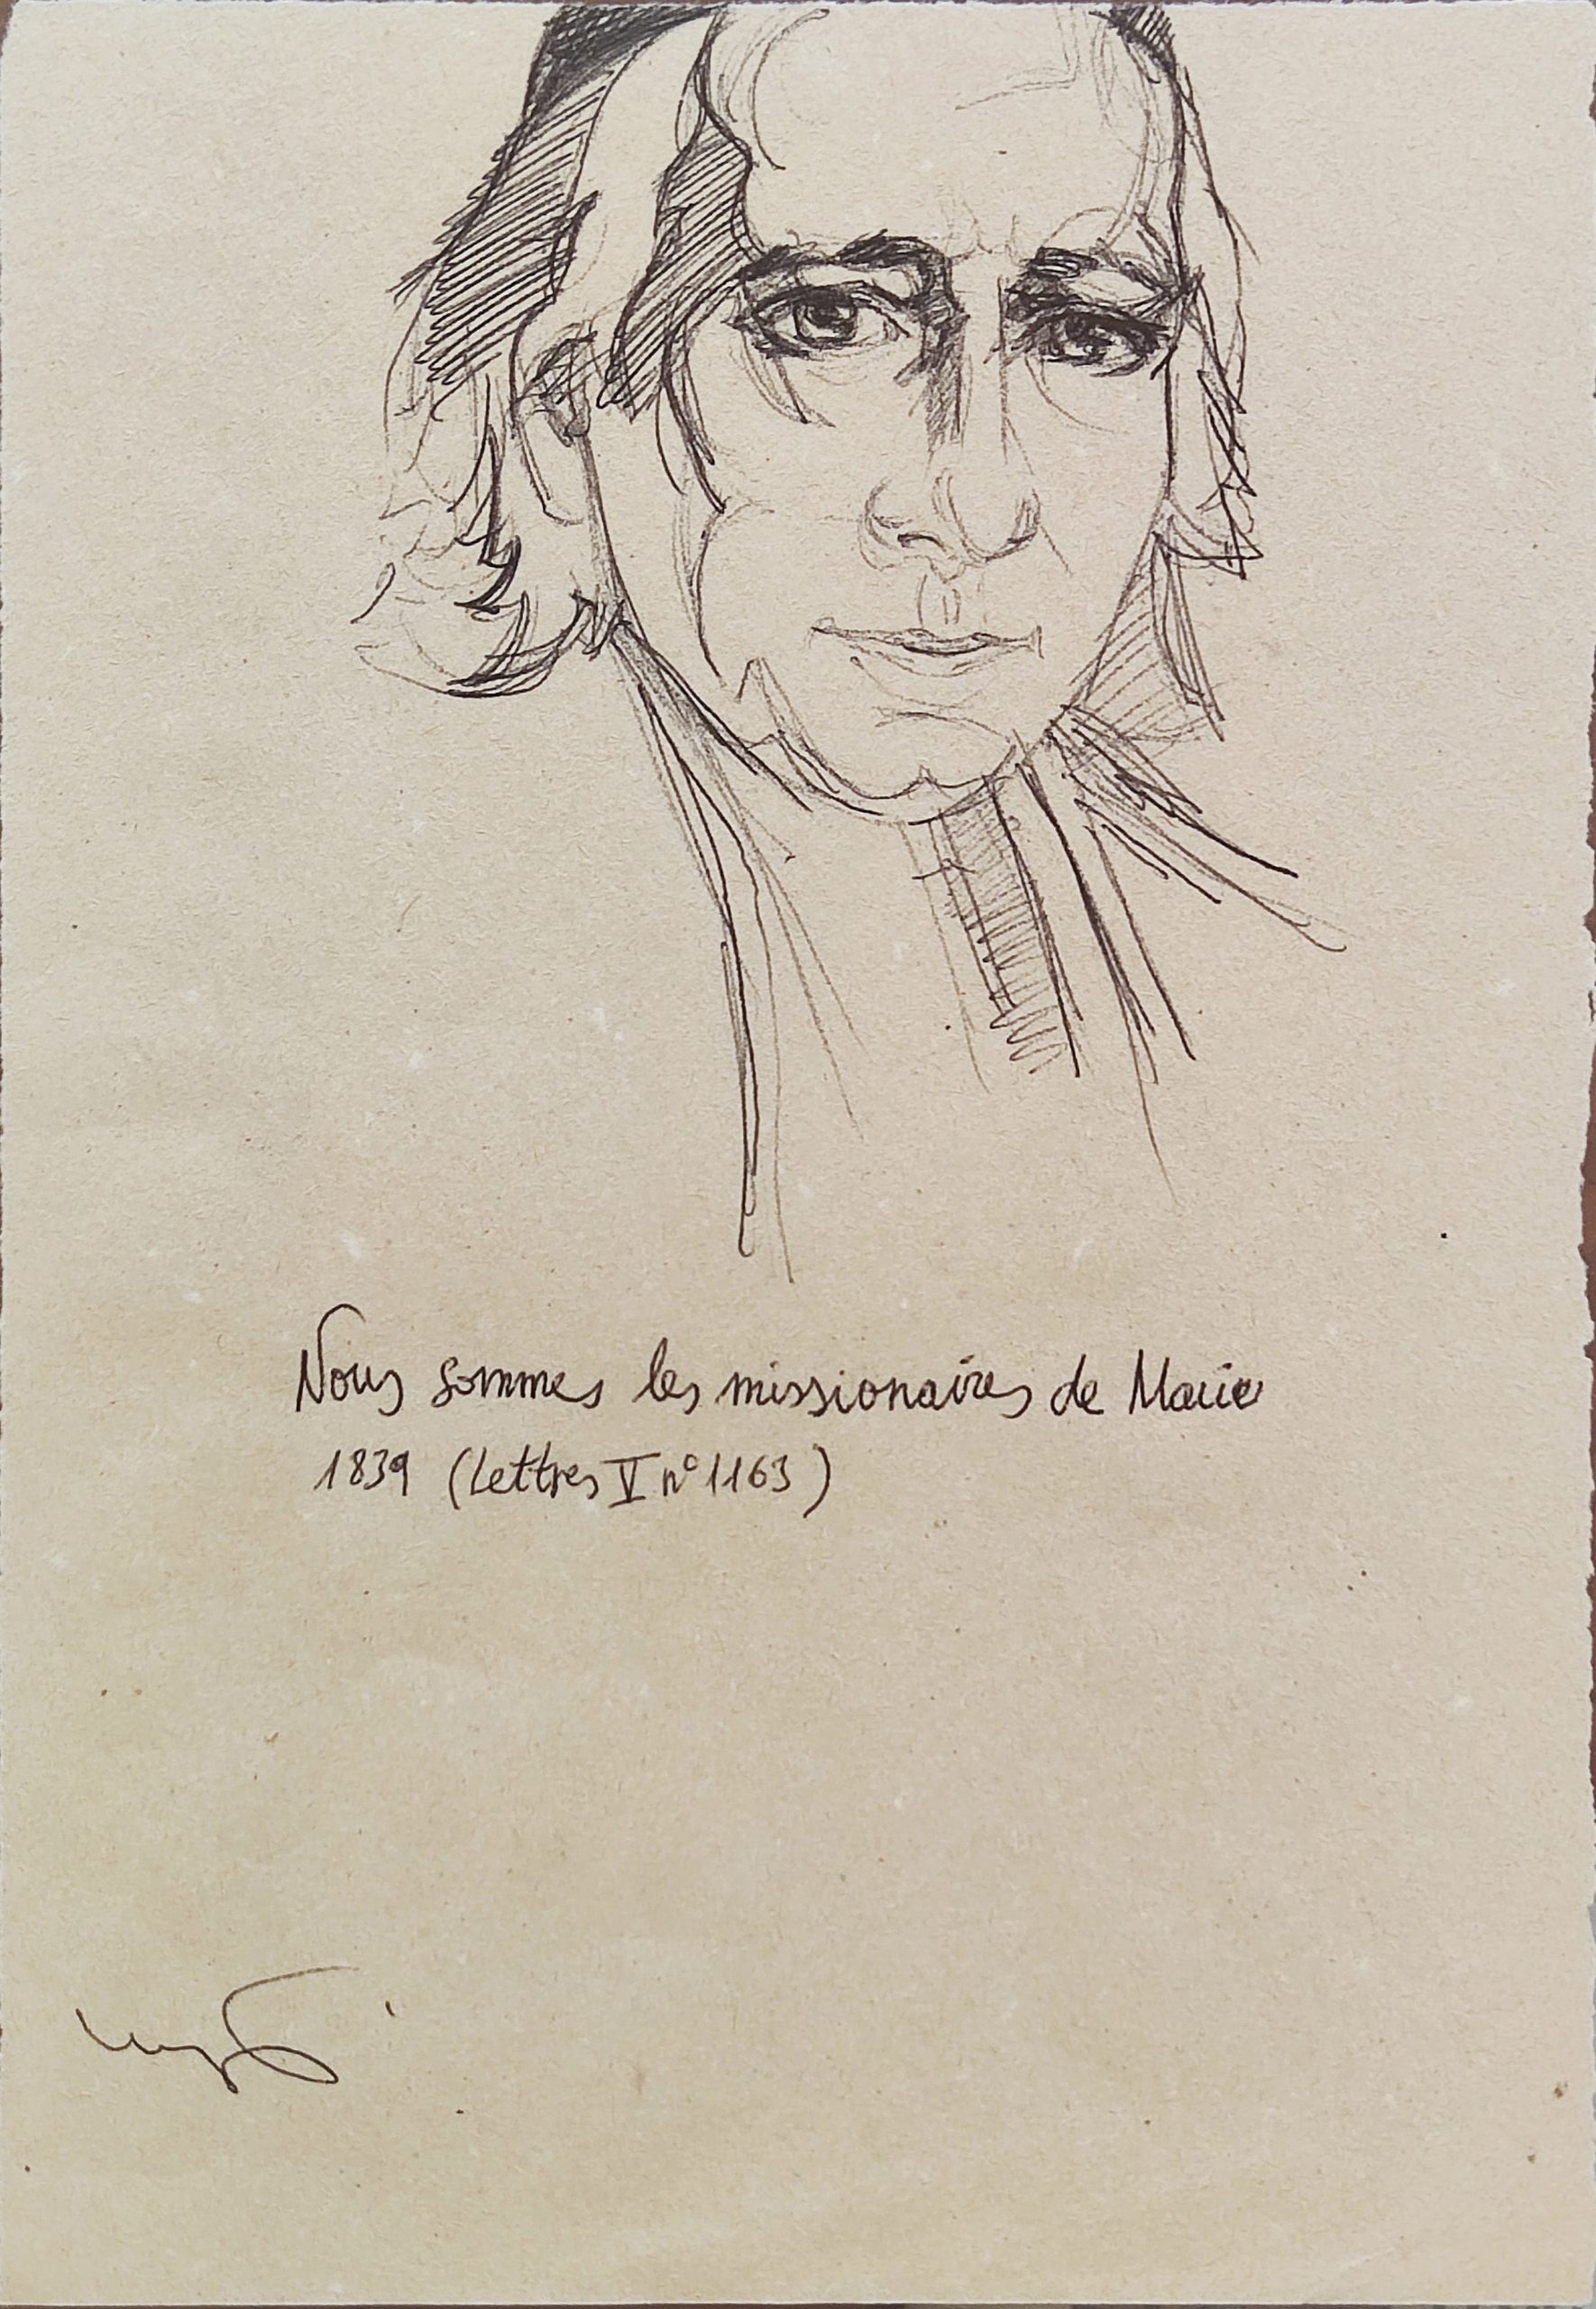 Nous sommes les missionaires de Marie
1839 (Lettres V n° 1163)